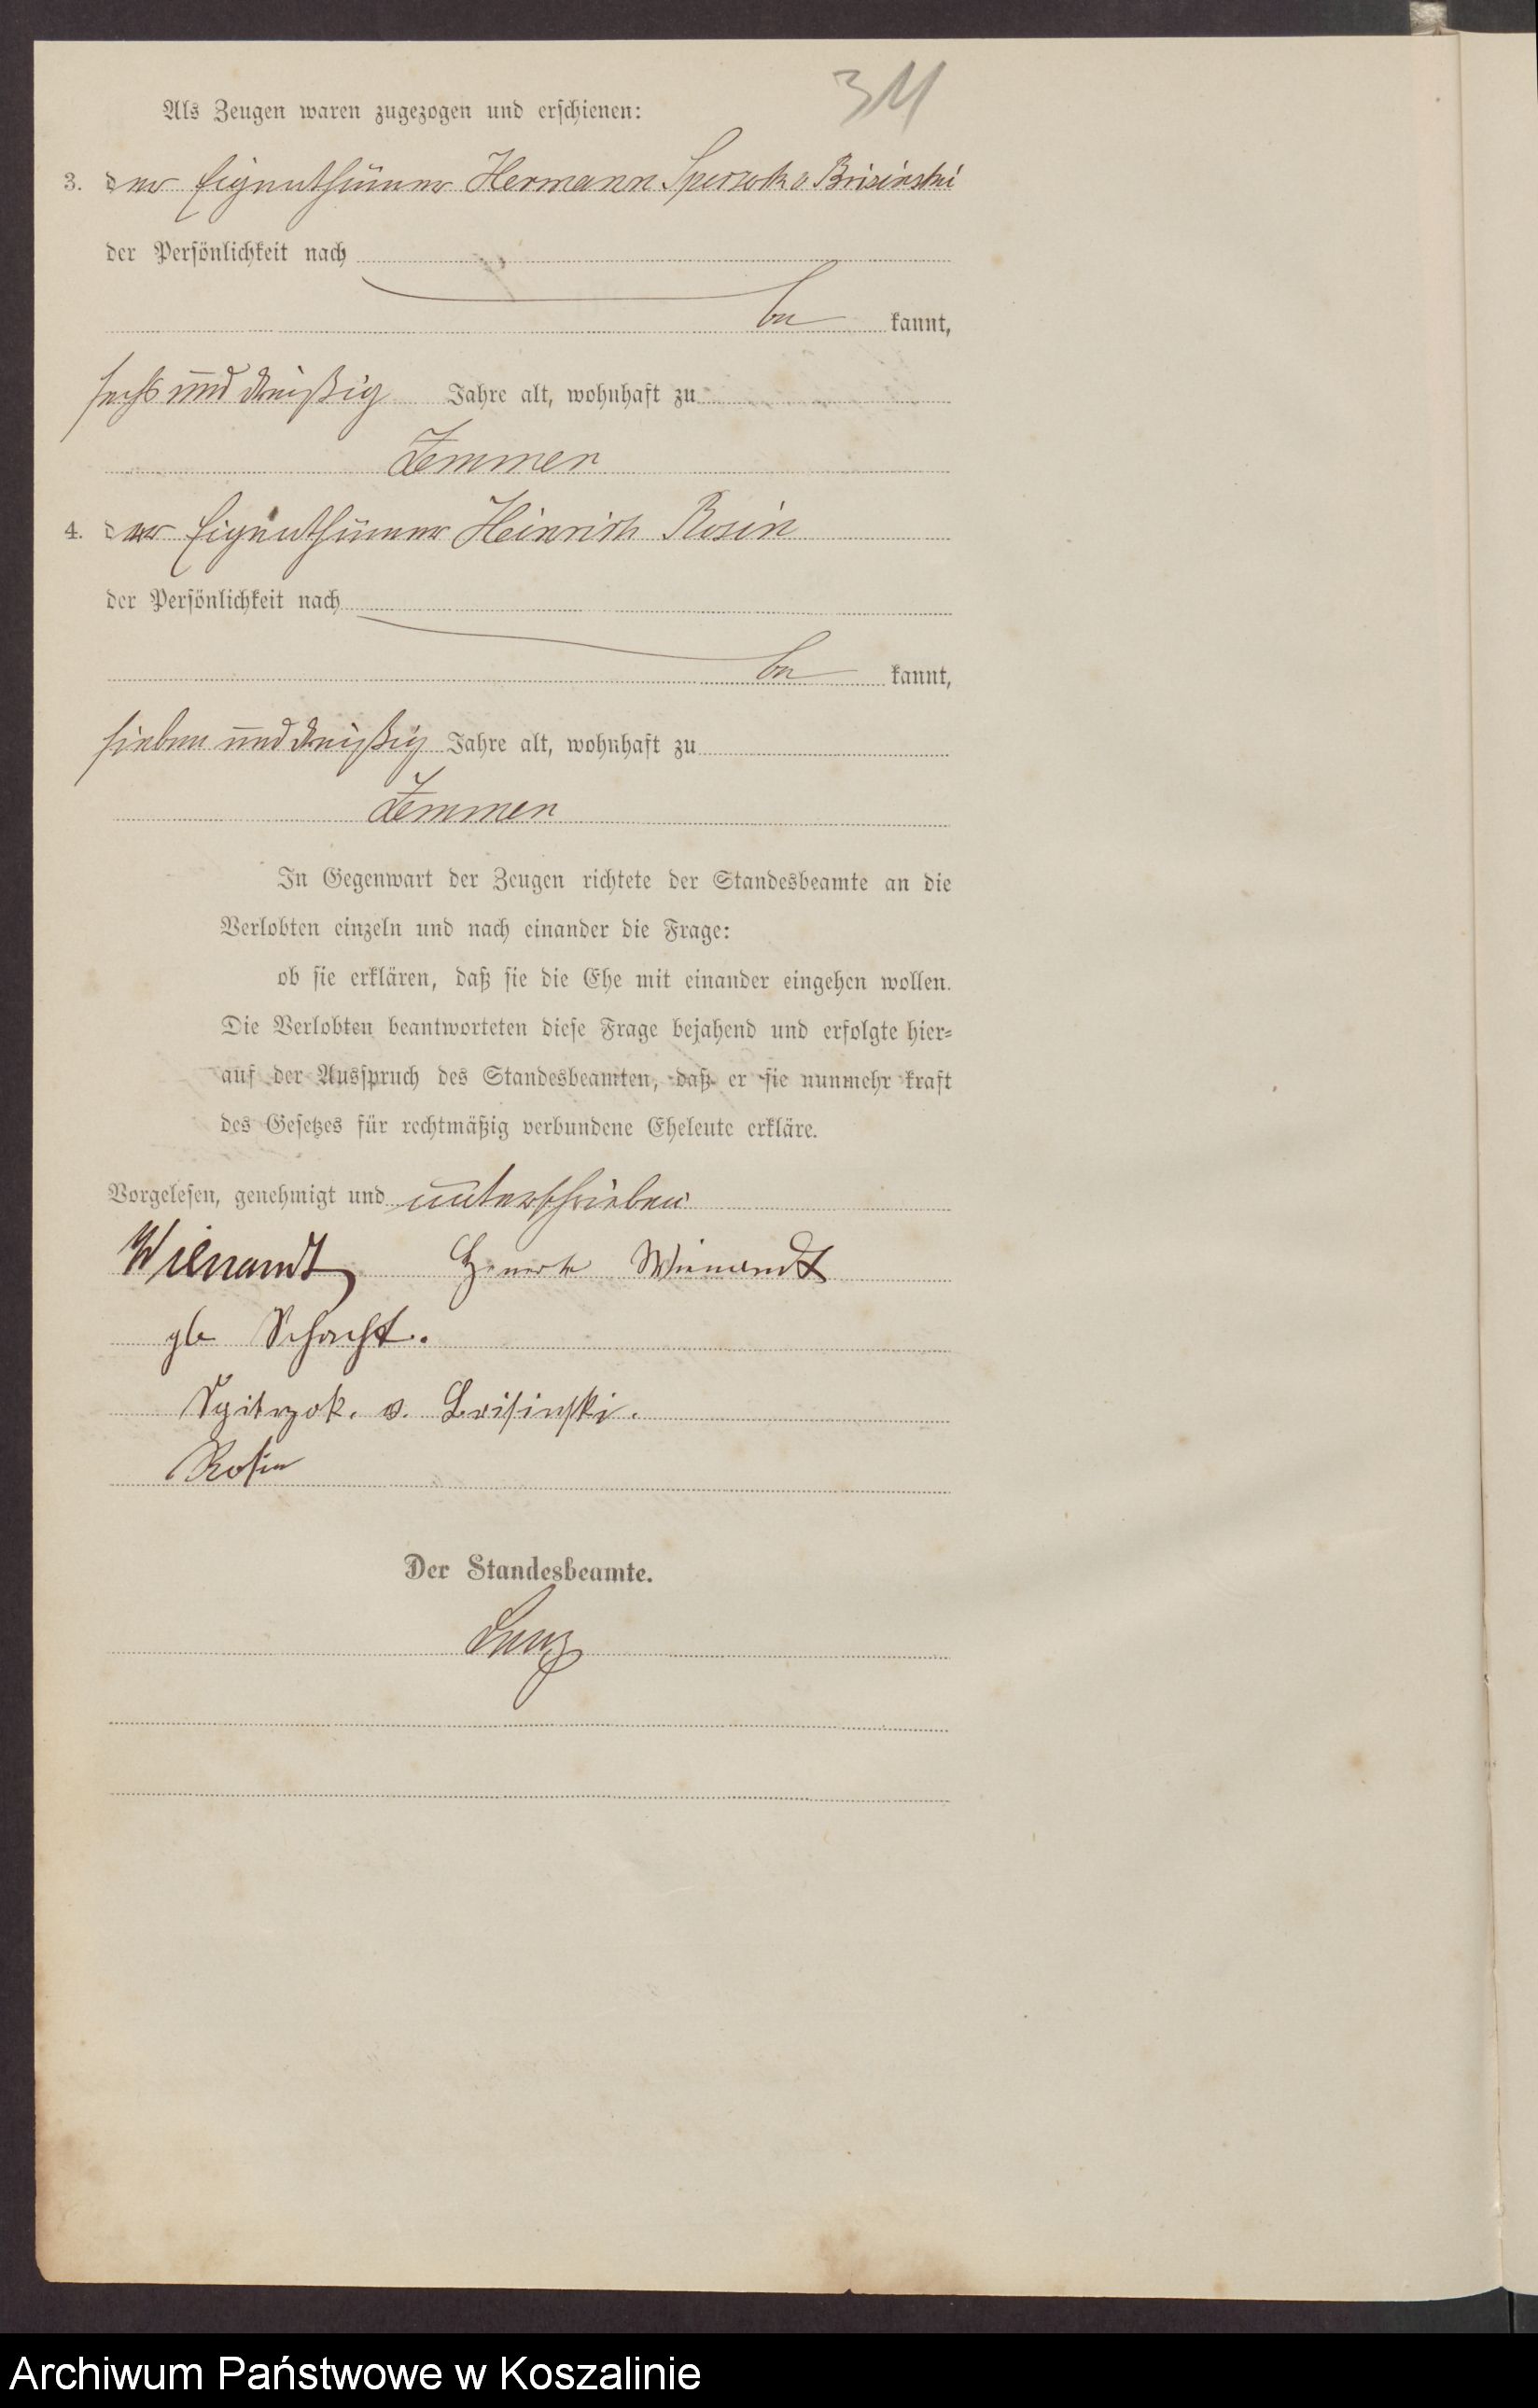 Als Zeugen waren zugezogen und erschienen:
3. der Eigenthümer Hermann v. Brisinski
der Persönlichkeit nach
be kannt,
sechs und dreißig Jahre alt, wohnhaft zu
Zemmen
4. der Eigenthümer Heinrich Rosin
der Persönlichkeit nach
be kannt,
sieben und dreißig Jahre alt, wohnhaft zu
Zemmen
In Gegenwart der Zeugen richtete der Standesbeamte an die
Verlobten einzeln und nach einander die Frage:
ob sie erklären, daß sie die Ehe mit einander eingehen wollen.
Die Verlobten beantworteten diese Frage bejahend und erfolgte hier-
auf der Ausspruch des Standesbeamten, daß er sie nunmehr kraft
des Gesetzes für rechtmäßig verbundene Eheleute erkläre.
Vorgelesen, genehmigt und unterschrieben
Wienandt Wienandt
gb Schacht.
v. Brisinski.
Rosin
Der Standesbeamte.
Archiwum Państwowe w Koszalinie